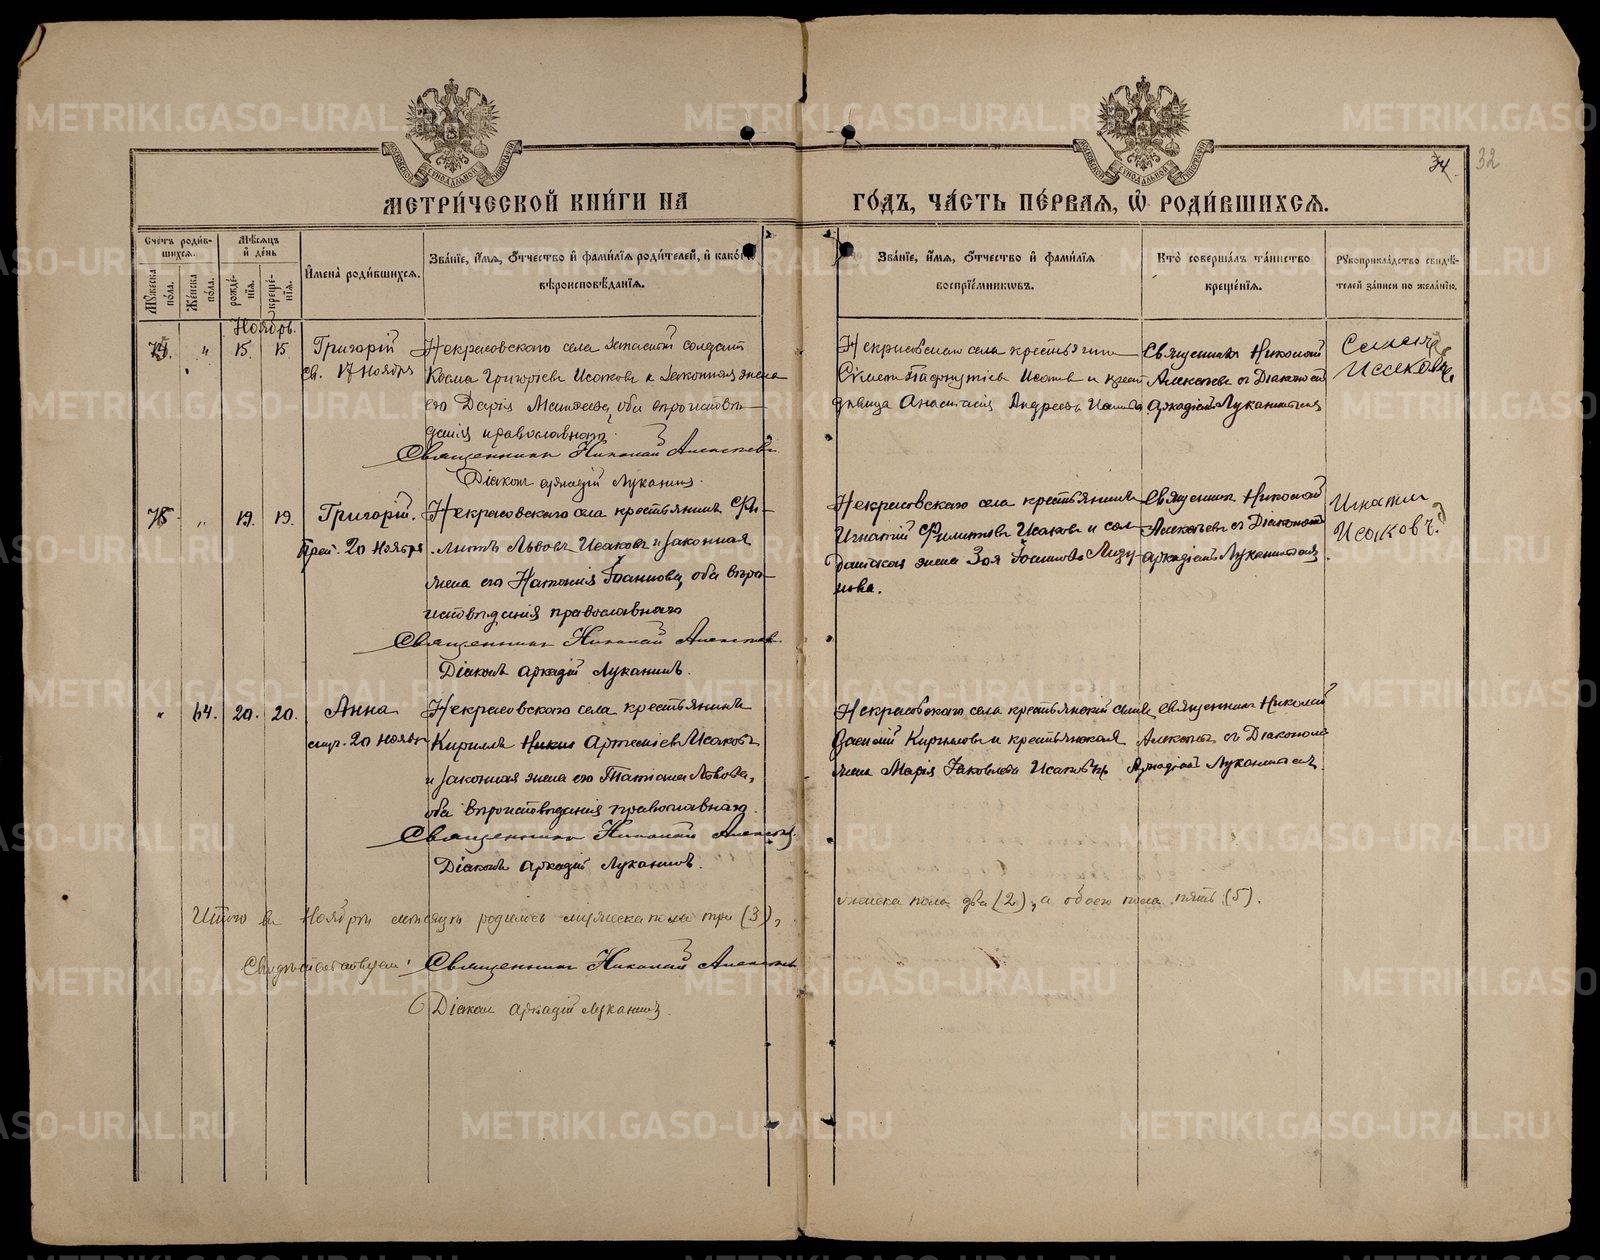 METRIKI.GASO-URAL.RU
34
32
МЕТРИ́ЧЕСКОЙ КНИ́ГИ НА
ГО́ДЪ, ЧА́СТЬ ПЕ́РВАЯ, Ѽ РОДИ́ВШИХСЯ.
Счетъ роди́в-
шихся.
Му́жеска по́ла.
Же́нска по́ла.
Мѣ́сяцъ
и̂ де́нь
рожде́-
нїя.
креще́-
нїя.
И̂мена̀ роди́вшихся.
Зва́нїе, и́мя, о́тчество и̂ фами́лїя роди́телей, и̂ како́гѡ
вѣроисповѣ́данїя.
Зва́нїе, и́мя, о́тчество и̂ фами́лїя
воспрїе́мниковъ.
Кто̀ соверша́лъ та́инство
креще́нїя.
Рꙋкоприкла́дство свидѣ́-
телей за́писи по жела́нїю.
Ноябрь.
74. „ 15. 15. Григорій
св. 17 Ноября
Некрасовскаго села запасный солдатъ
Косма Григоріевъ Исаковъ и законная жена
его Дарія Матѳеева, оба вѣроисповѣ-
данія православнаго.
Священникъ Николай Алексѣевъ
Діаконъ Аркадій Луканинъ.
Некрасовскаго села крестьянинъ
Пафнутіевъ Исаковъ и крест.
дѣвица Анастасія Андреева Исакова.
Священникъ Николай
Алексѣевъ съ Діакономъ
Аркадіемъ Луканинымъ
75 „ 19. 19. Григорій.
Преп. 20 Ноября
Некрасовскаго села крестьянинъ Фи-
липпъ Львовъ Исаковъ и законная
жена его Наталія Іоаннова, оба вѣро-
исповѣданія православнаго
Священникъ Николай Алексѣевъ.
Діаконъ Аркадій Луканинъ.
Некрасовскаго села крестьянинъ
Игнатій Филипповъ Исаковъ и сол-
датская жена Зоя Іоаннова Лизу-
нова.
Священникъ Николай
Алексѣевъ съ Діакономъ
Аркадіемъ Луканинымъ.
Игнатий
Исаковъ.
„ 64. 20. 20. Анна
20 Ноября
Некрасовскаго села крестьянинъ
Кириллъ Артеміевъ Исаковъ
и законная жена его Татіана Львова,
оба вѣроисповѣданія православнаго.
Священникъ Николай Алексѣевъ.
Діаконъ Аркадій Луканинъ.
Некрасовскаго села крестьянскій сынъ
Кирилловъ и крестьянская
жена Марія Іаковлева Исаковы
Священникъ Николай
Алексѣевъ съ Діакономъ
Аркадіемъ Луканинымъ.
Итого въ Ноябрѣ мѣсяцѣ родилось мужеска пола три (3),
женска пола два (2), а обоего пола пять (5).
Свидѣтельствуемъ: Священникъ Николай Алексѣевъ
Діаконъ Аркадій Луканинъ.